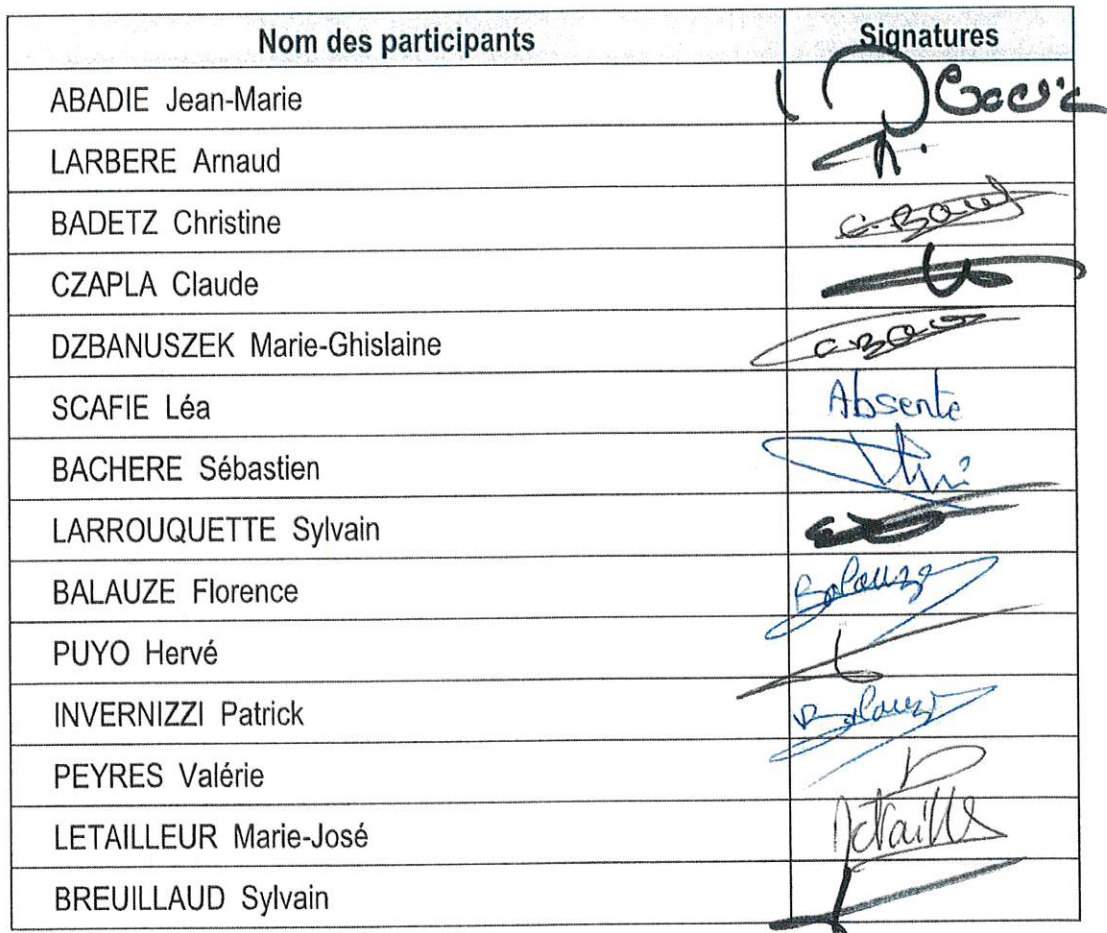 Nom des participants Signatures
ABADIE Jean-Marie
LARBERE Arnaud
BADETZ Christine
CZAPLA Claude
DZBANUSZEK Marie-Ghislaine
SCAFIE Léa Absente
BACHERE Sébastien
LARROUQUETTE Sylvain
BALAUZE Florence Balauze
PUYO Hervé
INVERNIZZI Patrick Balauze
PEYRES Valérie
LETAILLEUR Marie-José
BREUILLAUD Sylvain